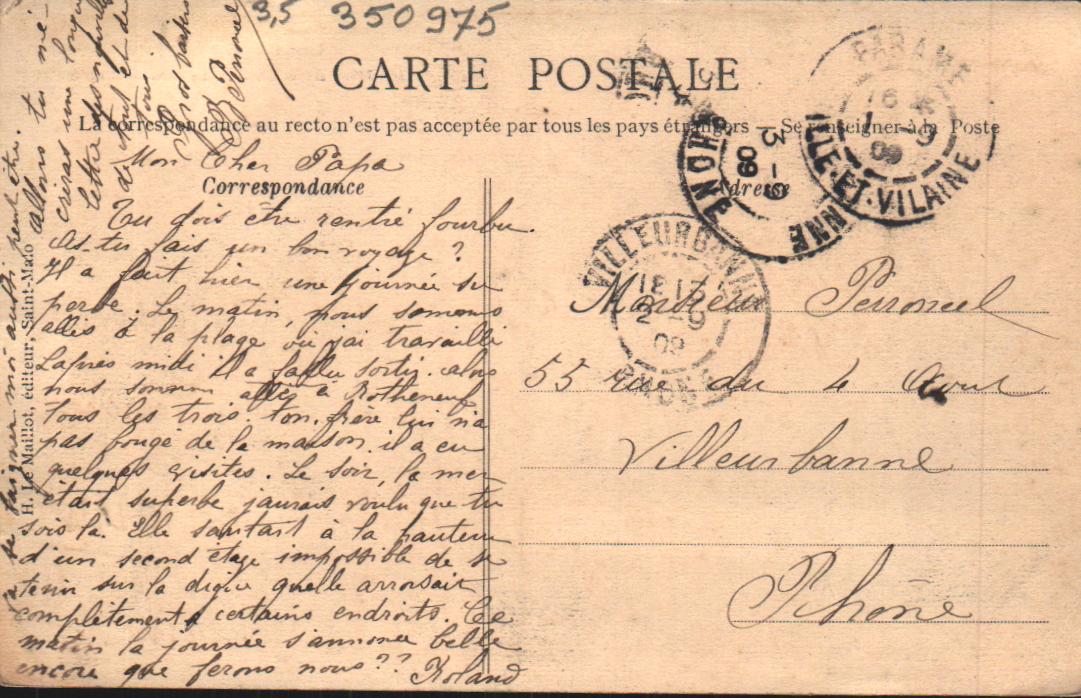 3,5 350975
CARTE POSTALE
La correspondance au recto n'est pas acceptée par tous les pays étrangers — Se renseigner à la Poste
Correspondance
Adresse
Mon Cher Papa
Tu dois être rentré fourbu.
As-tu fais un bon voyage ?
Il a fait hier une journée su
perbe. Le matin, nous sommes
allés à la plage où j'ai travaillé
L'après midi il a fallu sortir. alors
nous sommes allés à Rotheneuf
tous les trois ton frère lui n'a
pas bougé de la maison. il a eu
quelques visites. Le soir, la mer
était superbe jaurais voulu que tu
sois là. Elle sautait à la hauteur
d'un second étage impossible de se
tenir sur la digue quelle arrosait
complètement à certains endroits. Ce
matin la journée s'annonce belle
encore que ferons nous ?? Roland
moi aussi peut être.
allons tu m'é-
criras une longue
lettre
dis
Gros baisers
R Perroncel
H. Le Maillot, éditeur, Saint-Malo
Monsieur Perroncel
55 rue du 4 Aout
Villeurbanne
Rhône
PARAMÉ
16
1-9
09
ILLE-ET-VILAINE
3-9
09
VILLEURBANNE
18 17
2-9
09
RHONE